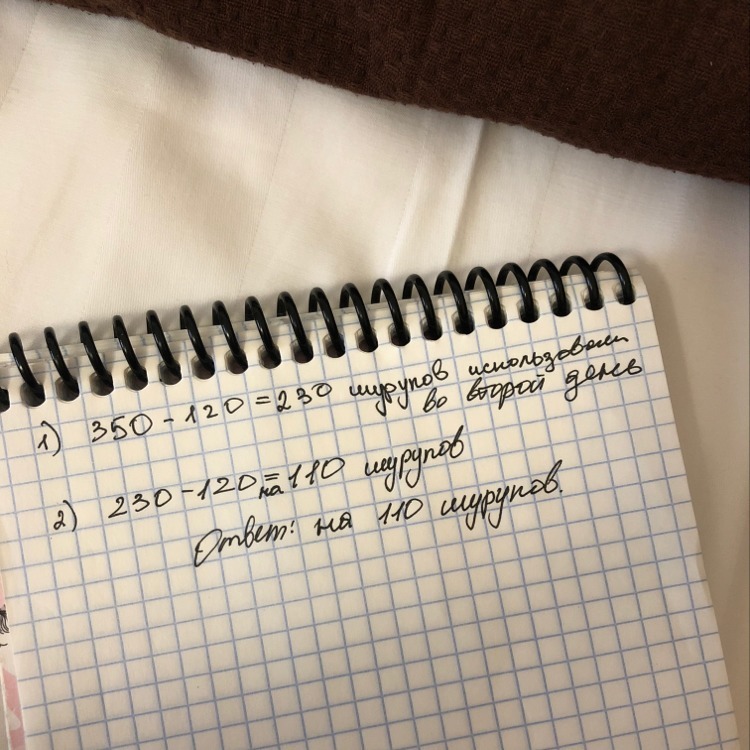 1) 350 - 120 = 230 шурупов использовали
во второй день
2) 230 - 120 = на 110 шурупов
Ответ: на 110 шурупов.